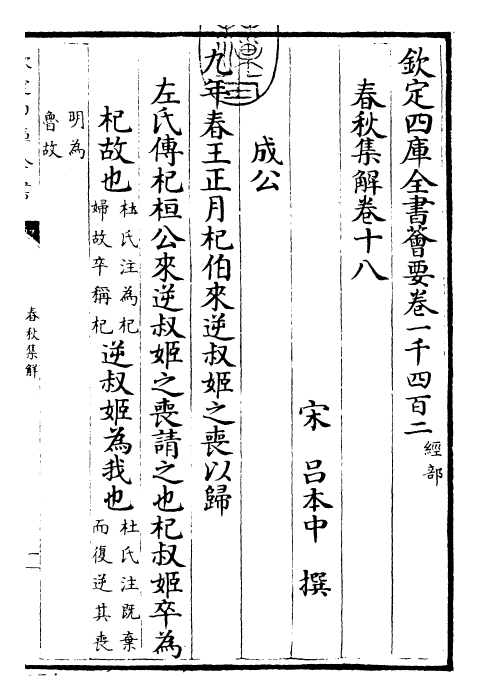 欽定四庫全書薈要卷一千四百二 經部
春秋集解卷十八
宋 呂本中 撰
成公
九年春王正月杞伯來逆叔姬之喪以歸
左氏傳杞桓公來逆叔姬之喪請之也杞叔姬卒為
杞故也 杜氏注為杞婦故卒稱杞 逆叔姬為我也 杜氏注既棄而復逆其喪
明為魯故
春秋集解
一